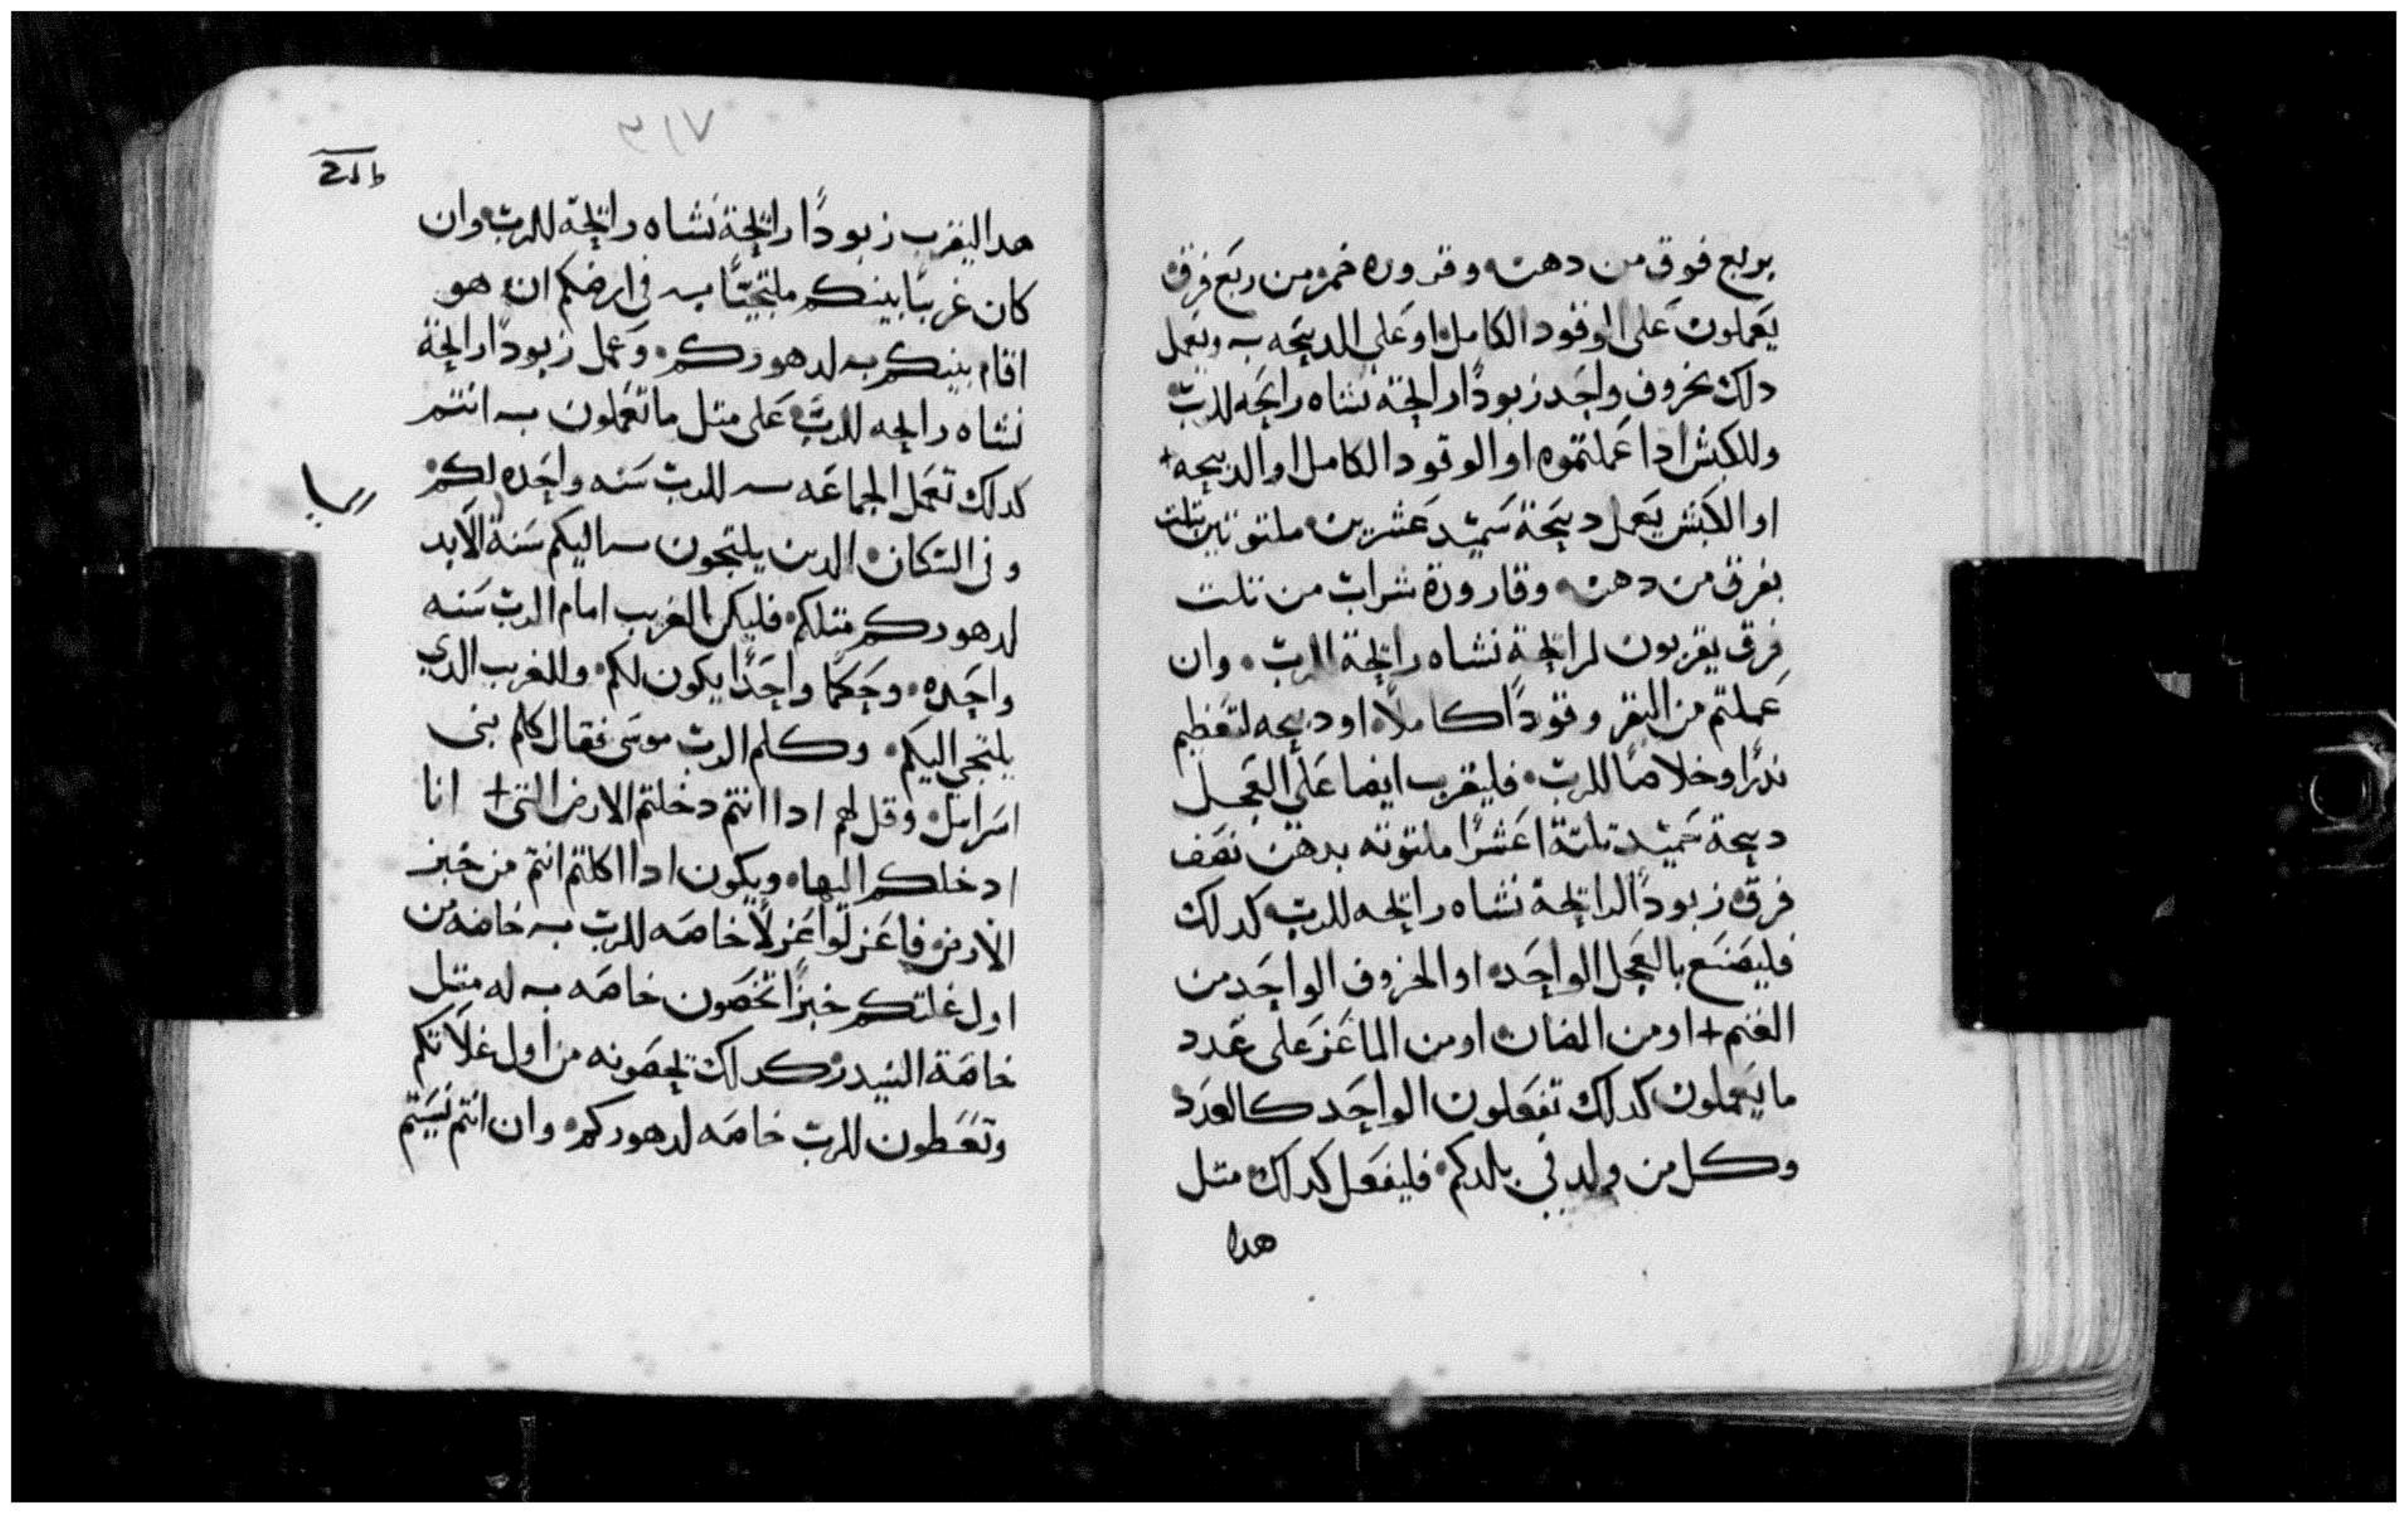 بربع فوق من دهن وقروره خمر من ربع فرق
يعملون على الوقود الكامل او على الدبيحه به ويعمل
دلك بخروف واحد زبودًا رايحة نشاه رايحه للرب
وللكبش ادا عملتموه او الوقود الكامل او الدبيحه +
او الكبش يعمل دبيحة سميد عشرين ملتوتين بتلت
بفرق من دهن وقارورة شراب من تلت
فرق يقربون لرايحة نشاه رايحة الرب وان
عملتم من البقر وقودًا كاملًا او دبيحه لتعظيم
ندرًا وخلاصًا للرب فليقرب ايضا على العجل
دبيحة سميد تلتة اعشرًا ملتوته بدهن نصف
فرق زبودًا لرايحة نشاه رايحه للرب كدلك
فليصنع بالعجل الواحد او الخروف الواحد من
الغنم + او من الضان او من الماعز على عدد
ما يعملون كدلك تفعلون الواحد كالعدد
وكل من ولد في بلدكم فليفعل كدلك متل
هدا
٣١٧
هدا اليقرب زبودًا رايحة نشاه رايحة للرب وان
كان غريبًا بينكم ملتجيًا به في ارضكم ان هو
اقام بينكم به لدهوركم وعمل زبودًا رايحة
نشاه رايحه للرب على متل ما تعملون به انتم
كدلك تعمل الجماعه به للرب سنه واحده لكم
وفي السكان الدين يلتجون به اليكم سنة الابد
لدهوركم متلكم فليكن الغريب امام الرب سنه
واحده وحكمًا واحدًا يكون لكم وللغريب الدي
يلتجي اليكم وكلم الرب موسى فقال كلم بنى
اسرايل وقل لهم ادا انتم دخلتم الارض التى + انا
ادخلكم اليها ويكون ادا اكلتم انتم من خبز
الارض فاعزلوا عزلًا خاصه للرب به خاصه من
اول غلتكم خبزًا تخصون خاصه به له متل
خاصة البيدر كدلك تخصونه من اول غلاتكم
وتعطون للرب خاصه لدهوركم وان انتم نسيتم